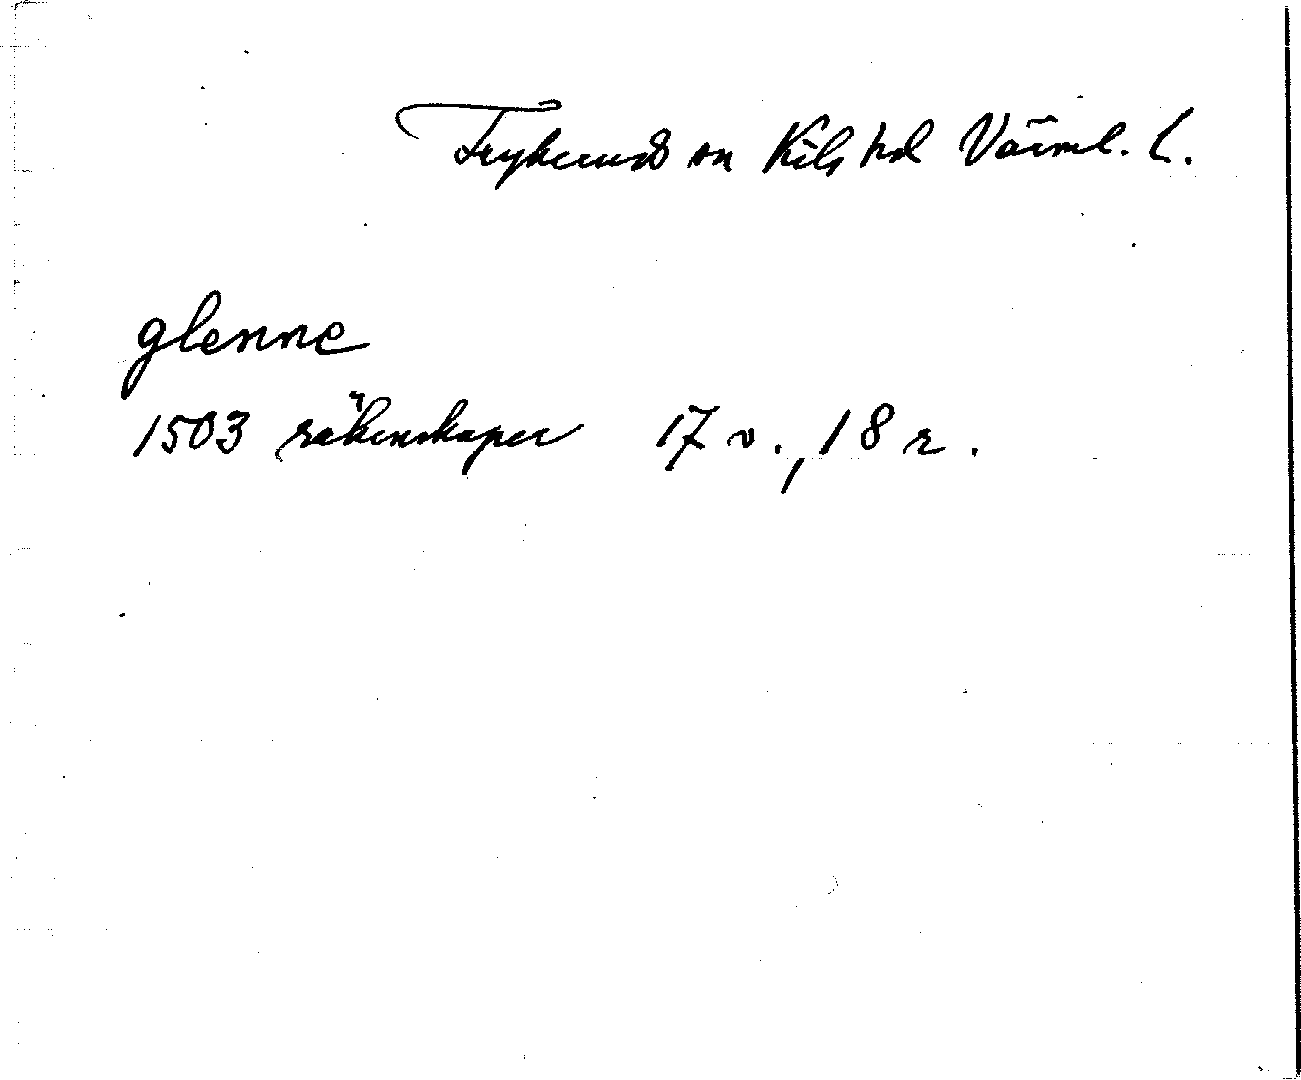 Frykerud sn Kils hd Värml. l.
glenne
1503 räkenskaper 17 v., 18 r.